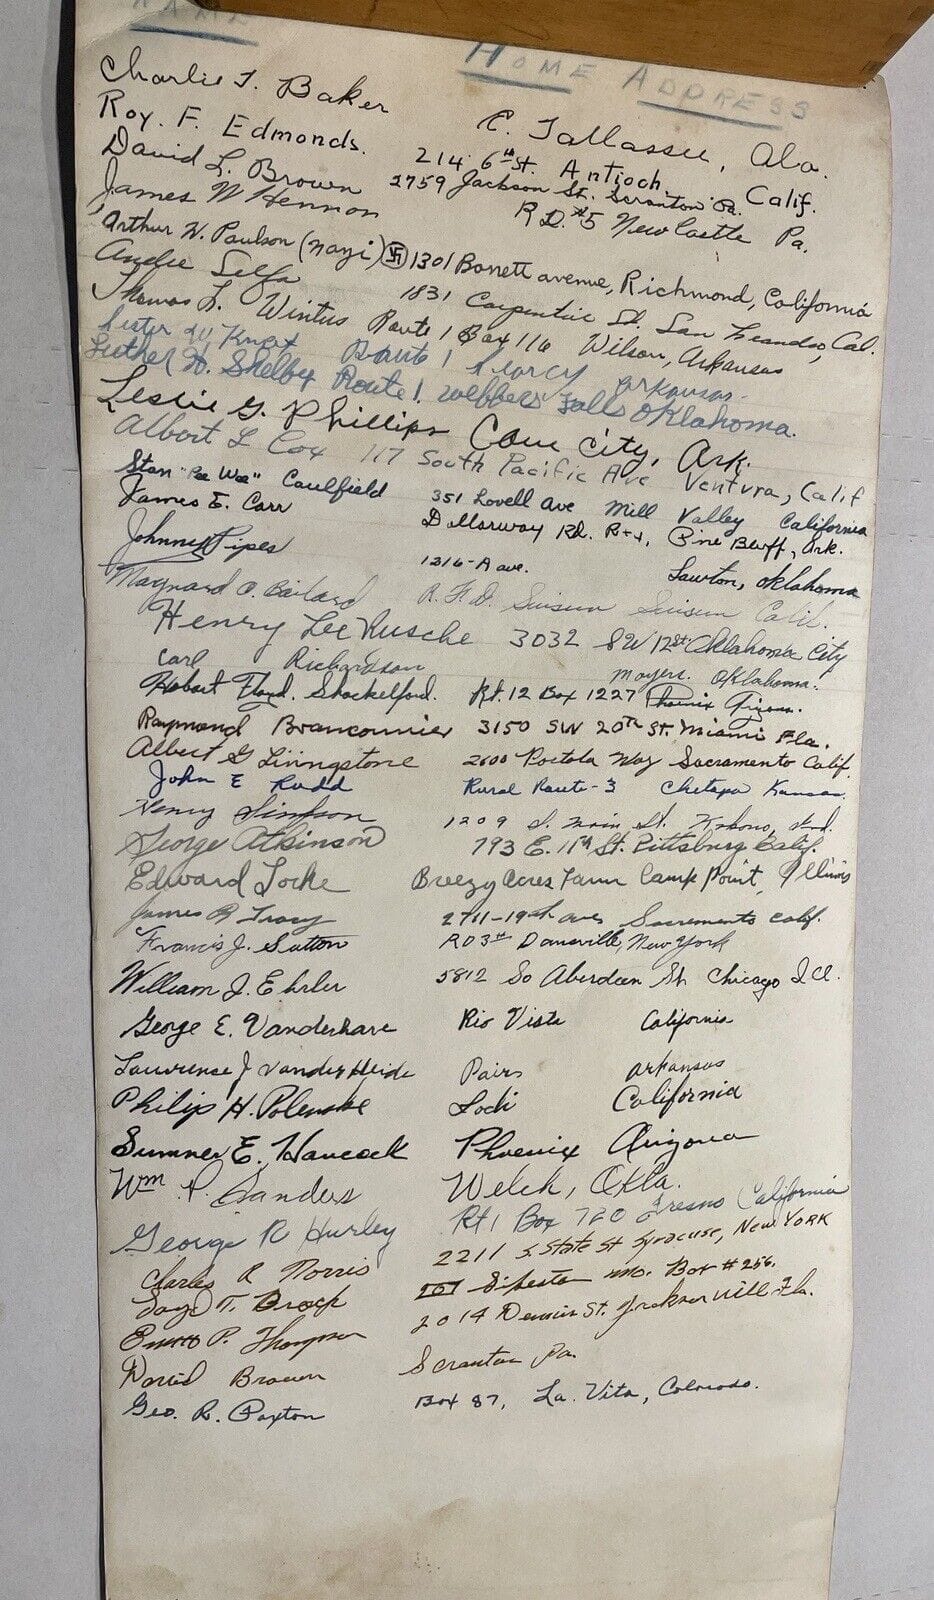 NAME HOME ADDRESS
Charlie T. Baker E. Tallassee, Ala.
Roy. F. Edmonds. 214 6th St. Antioch, Calif.
David L. Brown 2759 Jackson St. Scranton Pa.
James W Hennon R.D. #5 New Castle Pa.
Arthur W. Paulson (nazi) 卐 1301 Barrett avenue, Richmond, California
Andre Silfa 1831 Carpentier St. San Leandro, Cal.
Thomas L. Route 1 Box 116 Wilson, Arkansas
Lester W Knox Route 1 Searcy arkansas.
Luther H. Shelby Route 1. webbers Falls Oklahoma.
Leslie G. Phillips Cave City, Ark.
Albert L Cox 117 South Pacific Ave Ventura, Calif
Stan "Pee Wee" Caulfield 351 Lovell Ave Mill Valley California
James E. Carr Dollarway Rd. Rt 4, Pine Bluff, Ark.
Johnny Pipes 1216-A ave. Lawton, Oklahoma
Maynard O. R.F.D. Suisun Suisun Calif.
Henry Lee Kusche 3032 SW 12st Oklahoma City
Carl Richardson Moyers. Oklahoma.
Hobart Floyd. Shackelford. Rt. 12 Box 1227 Phoenix Arizona.
Raymond Brancounier 3150 SW 20th St. Miami Fla.
Albert G Livingstone 2600 Portola Way Sacramento Calif.
John E Rudd Rural Route-3 Chetopa Kansas.
Henry Simpson 1209 S. Main St. Kokomo, Ind.
George Atkinson 793 E. 11th St. Pittsburg Calif.
Edward Locke Breezy Acres Farm Camp Point, Illinois
James R Tracy 2711-19th ave Sacramento Calif.
Francis J. Sutton RD 3 Dansville, New York
William J. Ehrler 5812 So Aberdeen St. Chicago Ill.
George E. Vanderhare Rio Vista California
Lawrence J Vander Heide Pairs arkansas
Philip H. Polenske Lodi California
Sumner E. Hancock Phoenix Arizona
Wm P. Sanders Welch, Okla.
George R Hurley Rt 1 Box 720 Fresno California
Charles R Norris 2211 S. State St Syracuse, New York
T. Brock Sikeston mo. Box #256.
P. Thompson 2014 St. Jacksonville Fla.
David Brown Scranton Pa.
Geo. R. Paxton Box 87, La Vita, Colorado.